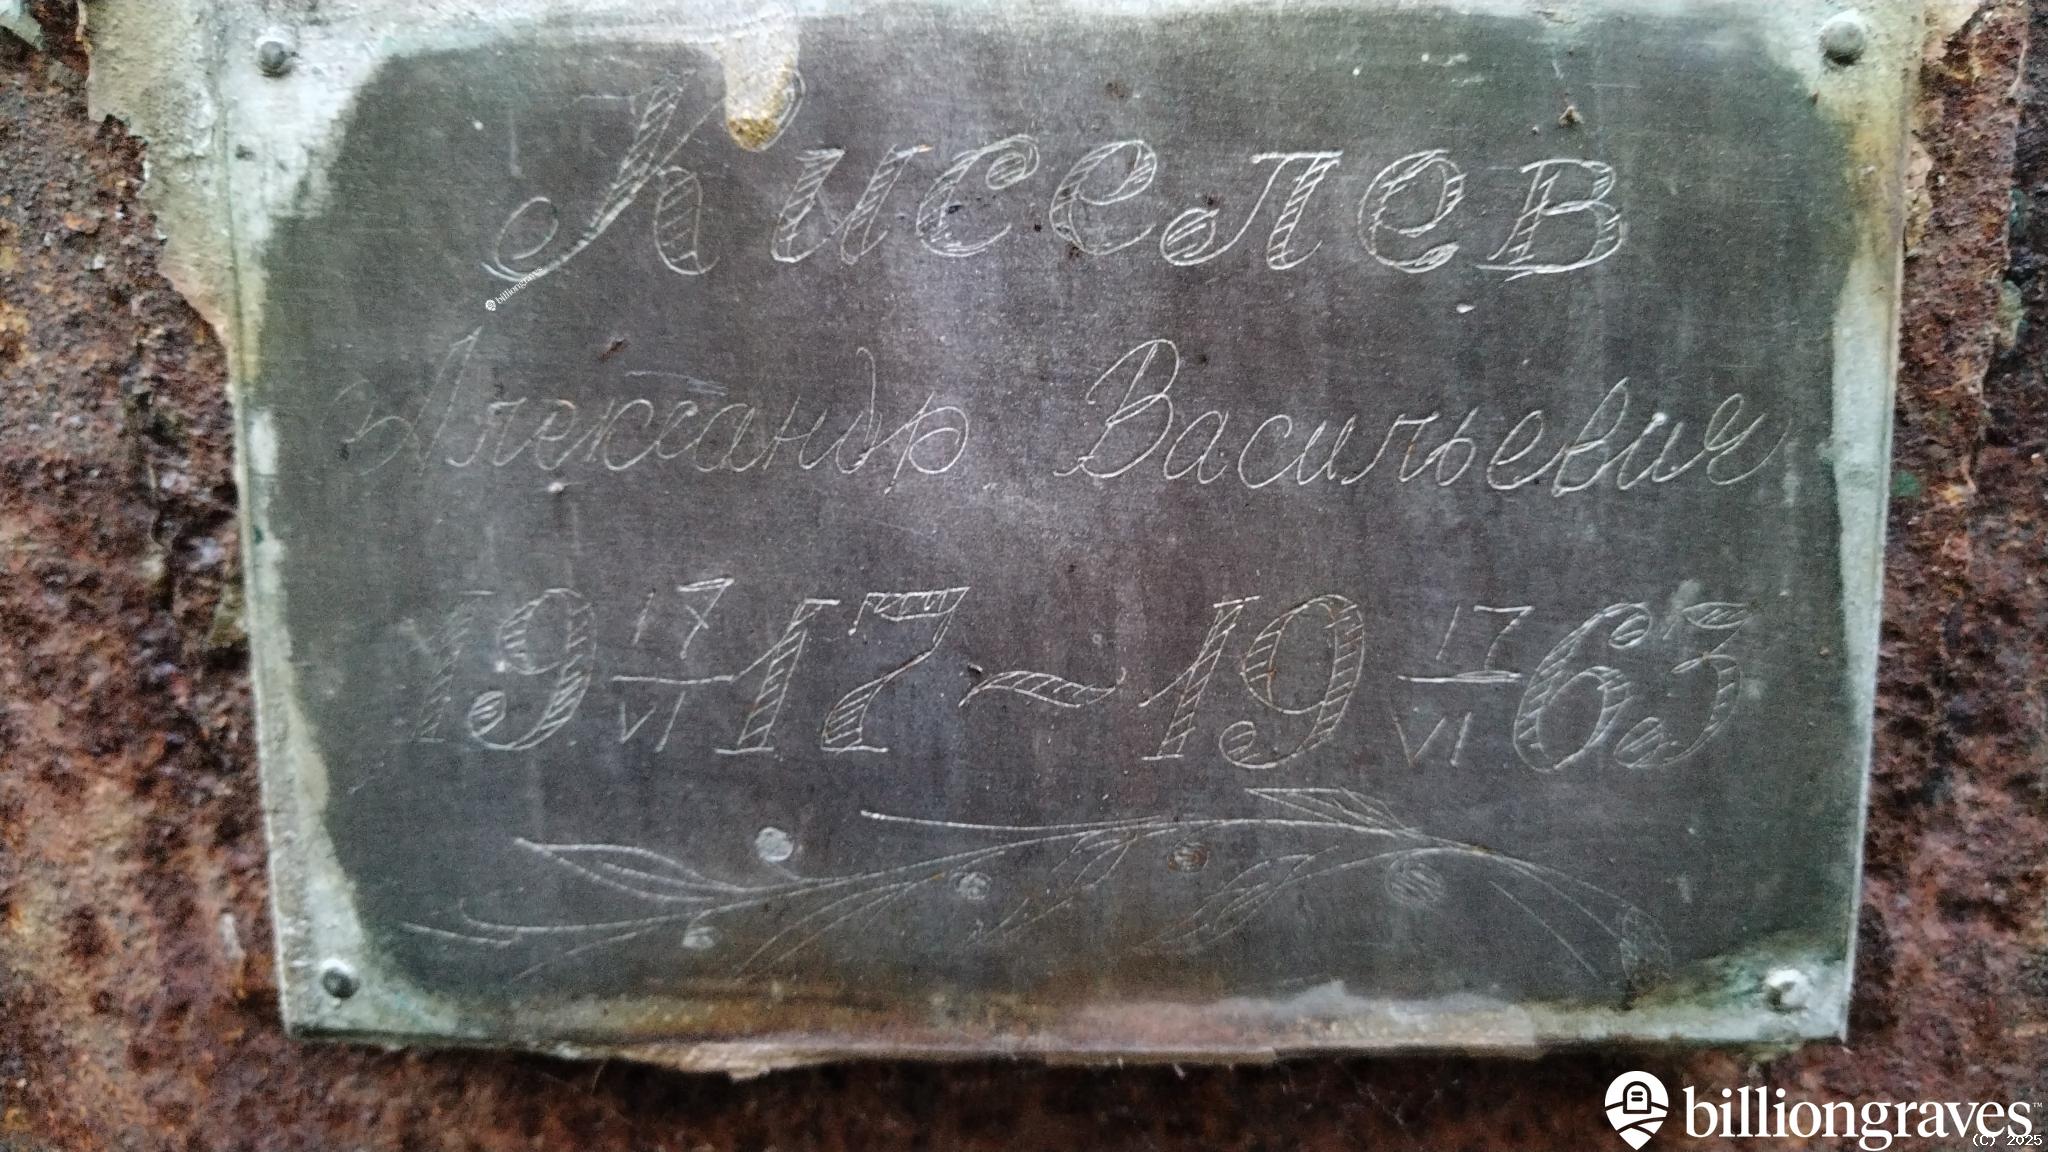 Киселев
Александр Васильевич
19 17/VI 17 ~ 19 17/VI 63
billiongraves
billiongraves™
(C) 2025